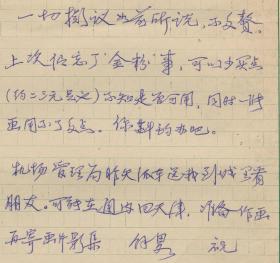 一切提议如前所说，不多赘。
上次你忘了"金粉"事，可以少买点
(约二三元足之)不知是否可用，同时一讲
画用不了多点。你斟酌办吧。
机场管理为昨天派车送我到城里看
朋友。可能在国内回天津，准备作画
再寄画片影集 祝